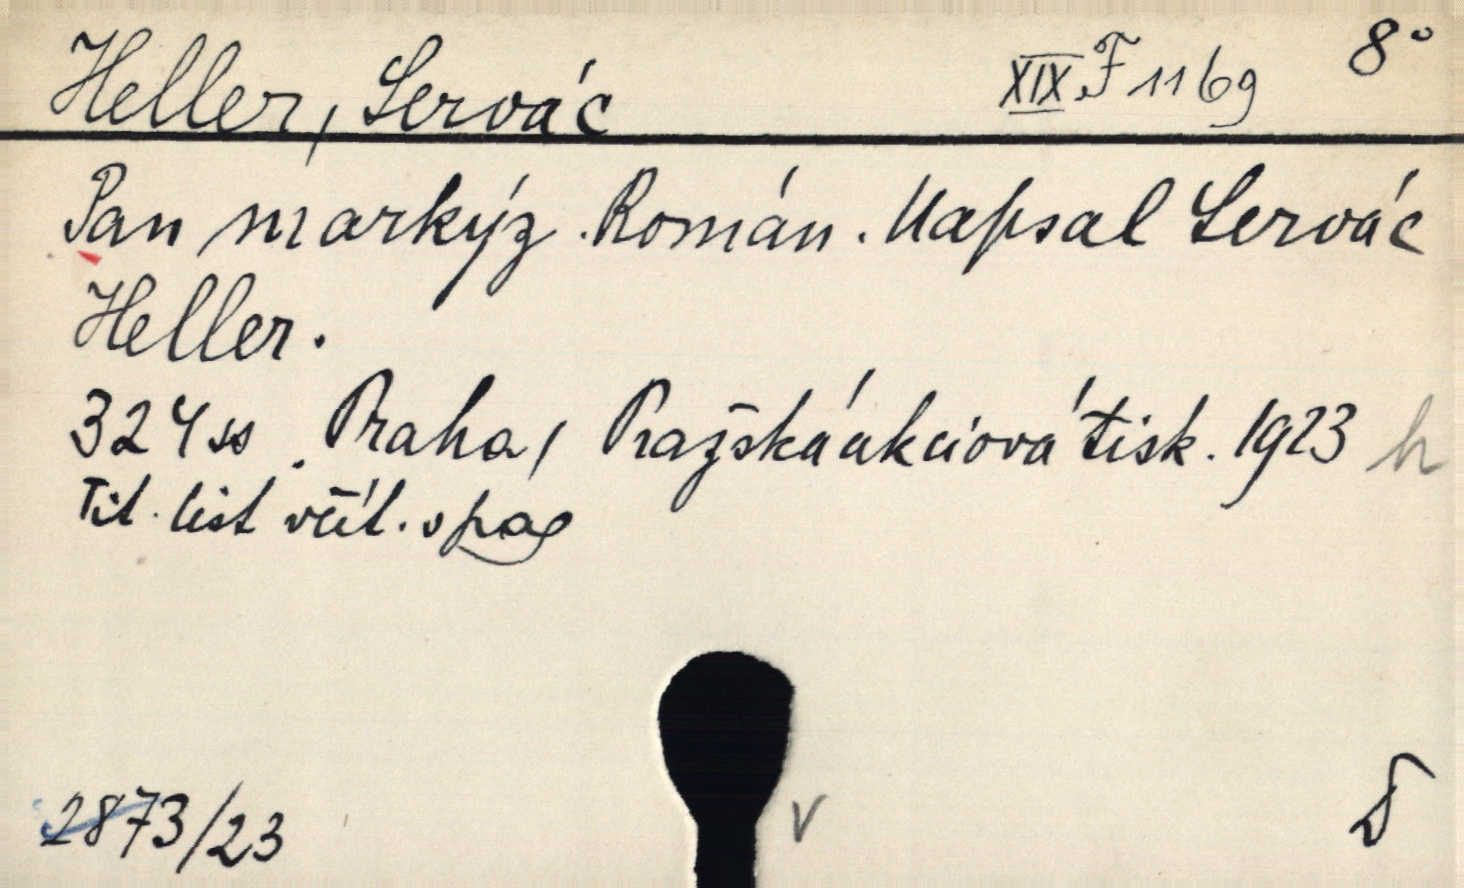 Heller, Servác XIX F 1169 8°
Pan markýz. Román. Napsal Servác
Heller.
324 ss. Praha, Pražská akciová tisk. 1923 h
Tit. list včít. v pag
2873/23 v